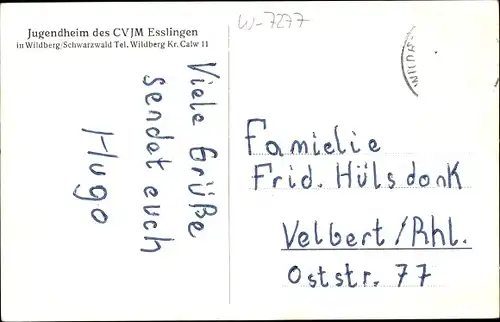 Jugendheim des CVJM Esslingen
in Wildberg/Schwarzwald Tel. Wildberg Kr. Calw 11
W-7277
Viele Grüße
sendet euch
Hugo
Famielie
Frid. Hülsdonk
Velbert/Rhl.
Oststr. 77